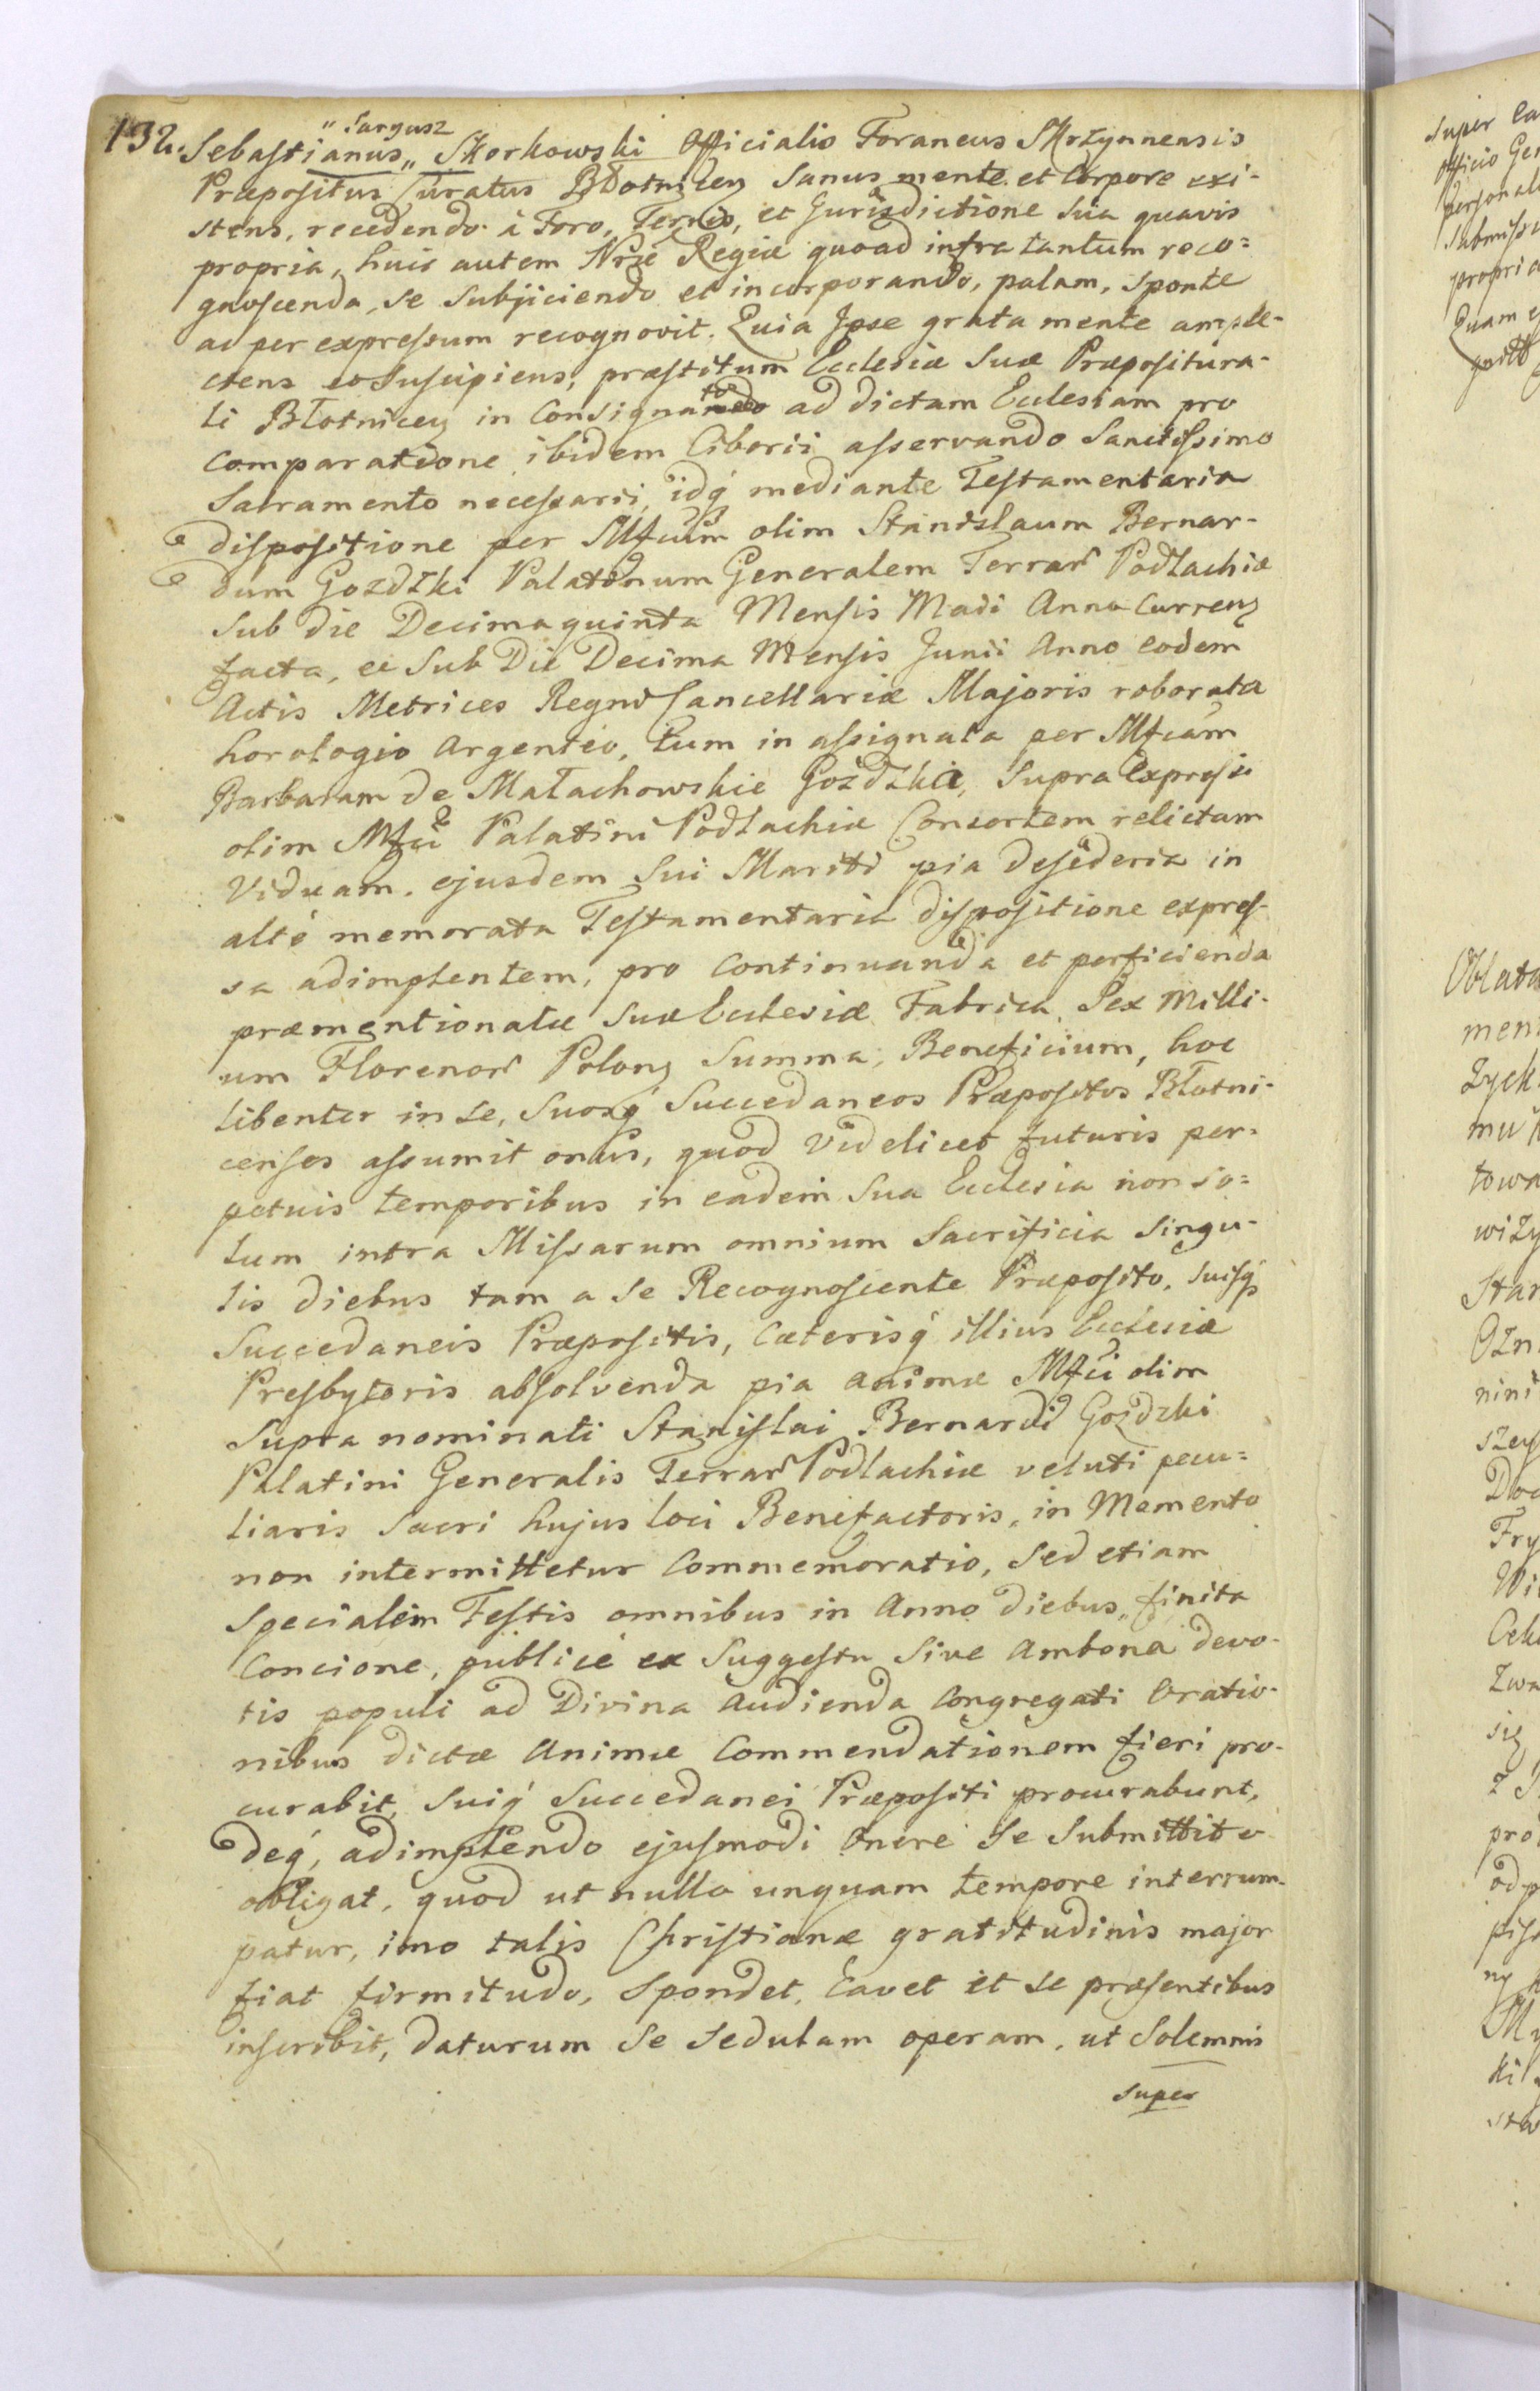 132.
" Saryusz
Sebastianus „ Skorkowski Officialis Foraneus Skrzynnensis
Præpositus Curatus Błotnicen Sanus mente et Corpore exi-
stens, recedendo à Foro, Terris, et Jurisdictione sua quavis
propria, huic autem Nræ Regiæ quoad infra tantum reco=
gnoscenda, se subjiciendo et incorporando, palam, sponte
ac per expressum recognovit. Quia Ipse grata mente ample-
ctens et suscipiens, præstitum Ecclesiæ Suæ Præpositura-
li Błotnicen in Consignato ad dictam Ecclesiam pro
Comparatione ibidem Ciborii asservando Sanctissimo
Sacramento necessarii, idq́ mediante Testamentaria
dispositione per Mfcum olim Stanislaum Bernar-
dum Gozdzki Palatinum Generalem Terrar Podlachiæ
sub die Decima quinta Mensis Maii Anno Curren
facta, et Sub Die Decima Mensis Junii Anno eodem
Actis Metrices Regni Cancellariæ Majoris roborata
horologio Argenteo, tum in assignata per Mfcam
Barbaram de Małachowskie Gozdzka, Supra Expressi
olim Mfci Palatini Podlachiæ Consortem relictam
Viduam. ejusdem Sui Mariti pia desideria in
altè memorata Testamentaria dispositione expres-
sa adimplentem, pro Continuanda et perficienda
præmentionatæ suæ Ecclesiæ Fabrica, Sex Milli-
um Florenor Polon Summa, Beneficium, hoc
libenter in se, Suosq́ Succedaneos Præpositos Błotni-
censes assumit onus, quod videlicet futuris per-
petuis temporibus in eadem Sua Ecclesia non so=
lum intra Missarum omnium Sacrificia singu-
lis diebus tam a se Recognoscente Præposito, suisq́
Succedaneis Præpositis, Cæterisq́ illius Ecclesiæ
Presbyteris absolvenda pia animæ Mfci olim
Supra nominati Stanislai Bernardi Gozdzki
Palatini Generalis Terrar Podlachiæ veluti pecu=
liaris Sacri hujus loci Benefactoris, in Memento
non intermittetur Commemoratio, sed etiam
specialem Festis omnibus in Anno diebus, finita
Concione, publicè ex Suggestu sive Ambona devo-
tis populi ad Divina Audienda Congregati Oratio-
nibus dictæ Animæ Commendationem fieri pro-
curabit, suiq́ Succedanei Præpositi procurabunt,
deq́, adimplendo ejusmodi Onere se submittit et
obligat, quod ut nullo unquam tempore interrum-
patur, imo talis Christianæ gratitudinis major
fiat firmitudo, spondet, Cavet et se præsentibus
inscribit, daturum se sedulam operam, ut Solemnis
super
super
Officio
personal
propria
Quam
Oblata